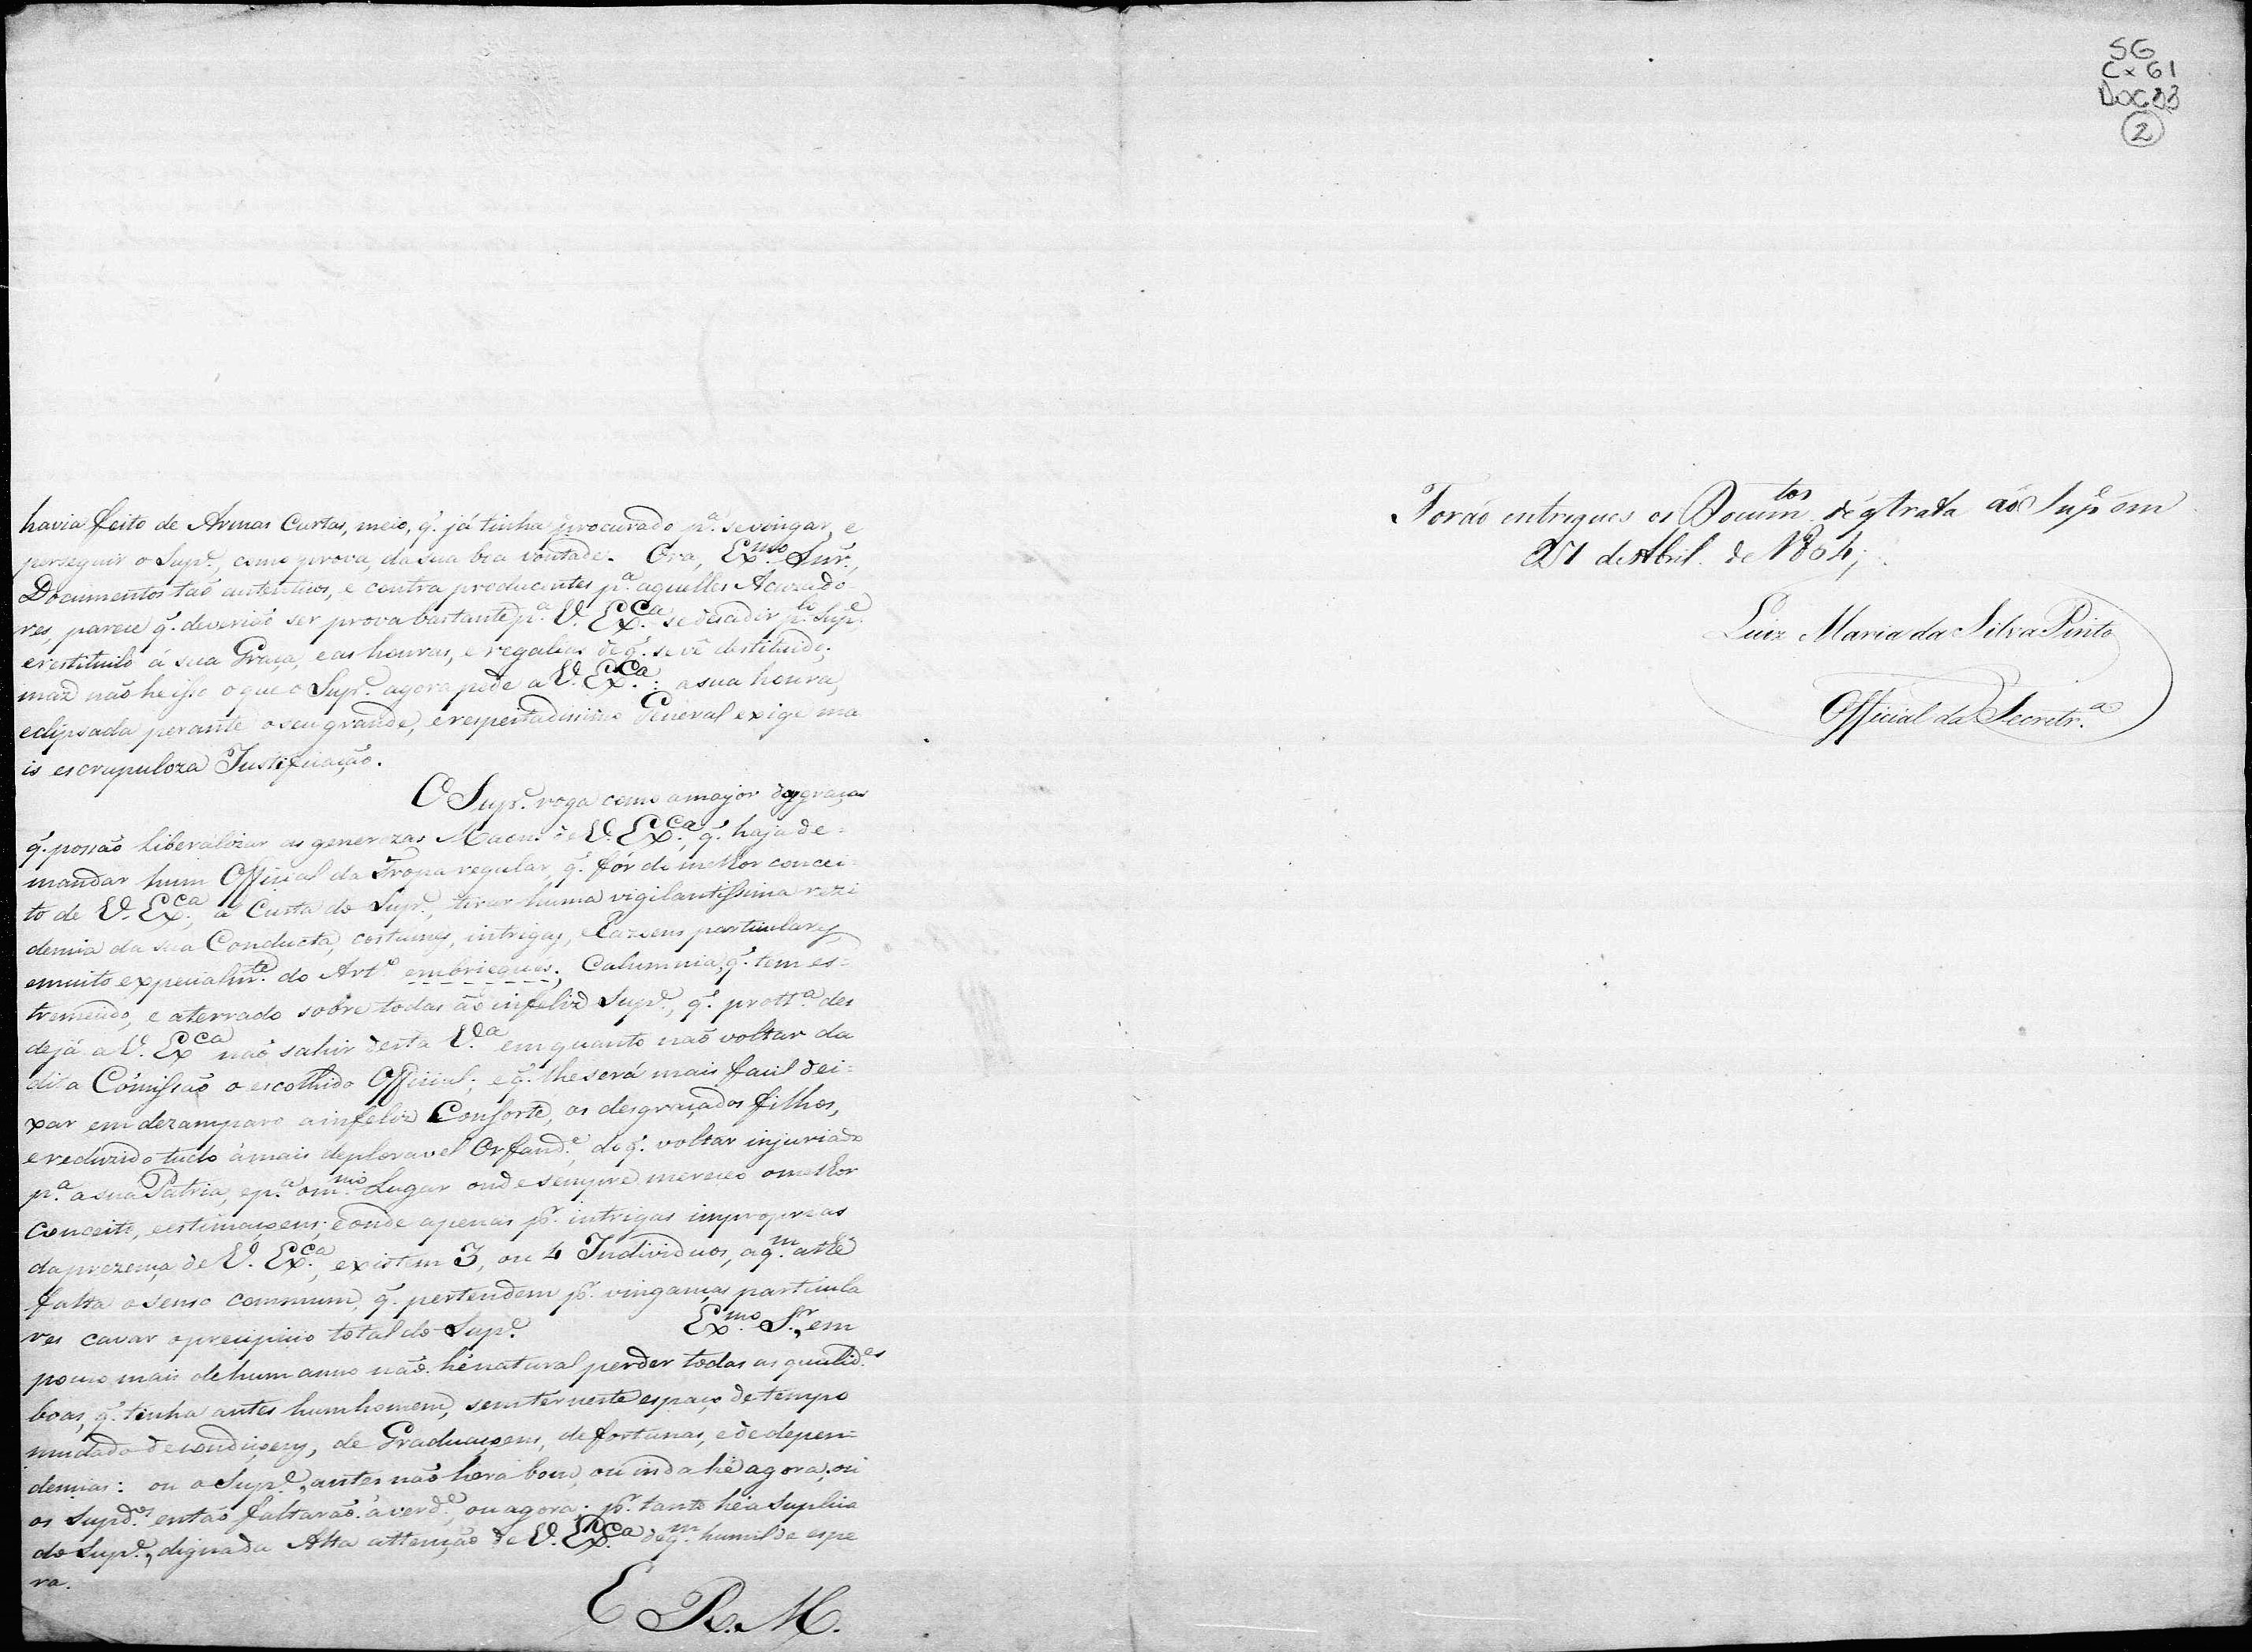 havia feito de Armas Curtas, meio, q̃. já tinha procurado p.ª sevingar, e
perseguir o Sup.e, como prova, da sua boa vontade. Ora, Ex.mo Snr.,
Documentos taõ autenticos, e contra producentes p.ª aquelles Acuzado
res, parece q̃. deveriaõ ser prova bastante p.ª V. Ex.ca se decidir p.lo Sup.e
erestituilo á sua Graça, e as honras, e regalias de q̃. se vê destituido;
maz naõ he isso o que o Sup.e agora pede a V. Ex.ca: a sua honra,
eclipsada perante o seu grande, e respeitadissimo General exige ma
is escrupuloza Justificaçaõ.
O Sup.e roga como a mayor das graças
q̃. possaõ liberalizar as generozas Maons de V. Ex.ca, q̃. haja de=
mandar hum Official da Tropa regular, q̃. fór de melhor concei=
to de V. Ex.ca, á Custa do Sup.e, tirar huma vigilantissima rezi
dencia da sua Conducta, costumes, intrigas, e azsens particulares,
emuito expecialm.te do Art.o embrieques; Calumnia, q̃. tem es=
tremecido, e aterrado sobre todas aõ infeliz Sup.e, q̃. prott.a des
de já a V. Ex.ca naõ sahir desta V.a emquanto naõ voltar da
dita Comissaõ o escolhido Official; e q̃. lhe será mais facil dei=
xar em dezamparo a infeliz Consorte, os desgraçados filhos,
e reduzido tudo á mais deploravel Orfand.e, do q̃. voltar injuriado
p.ª a sua Patria, e p.ª o m.mo Lugar onde sempre mereceo o melhor
conceito, e estimaçoens; e onde apenas p.r intrigas improprias
da prezença de V. Ex.ca, existem 3, ou 4 Individuos, a q.m athe
falta o senso commum, q̃. pertendem p.r vinganças particula
res cavar o precipicio total do Sup.e Ex.mo S.r, em
pouco mais de hum anno naõ hé natural perder todas as qualid.es
boas, q̃. tinha antes hum homem, sem ter neste espaço de tempo
mudado de condiçoens, de Graduaçoens, de fortunas, e de depen=
dencias: ou o Sup.e, antes naõ hera bom, ou inda hé agora; ou
os Supd.os entaõ faltaraõ á verd.e, ou agora: p.r tanto hé a Suplica
do Sup.e, digna da Alta attençaõ de V. Ex.ca de q.m humilde espe
ra.
E R. M.
SG
Cx 61
Doc 33
2
Foraõ entregues os Docum.tos de q̃ trata aõ Sup.e em
27 de Abril de 1804;
Luiz Maria da Silva Pinto
Official da Secretr.ª